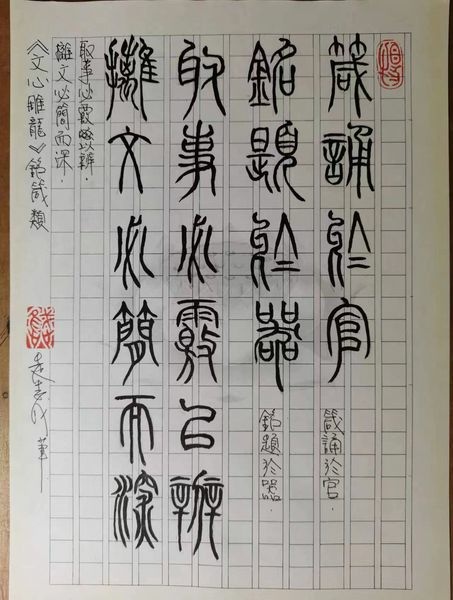 箴誦於官
箴誦於官．
銘題於器
銘題於器．
取事必覈以辨
攡文必簡而深
取事必覈以辨．
攡文必簡而深．
《文心雕龍》銘箴類